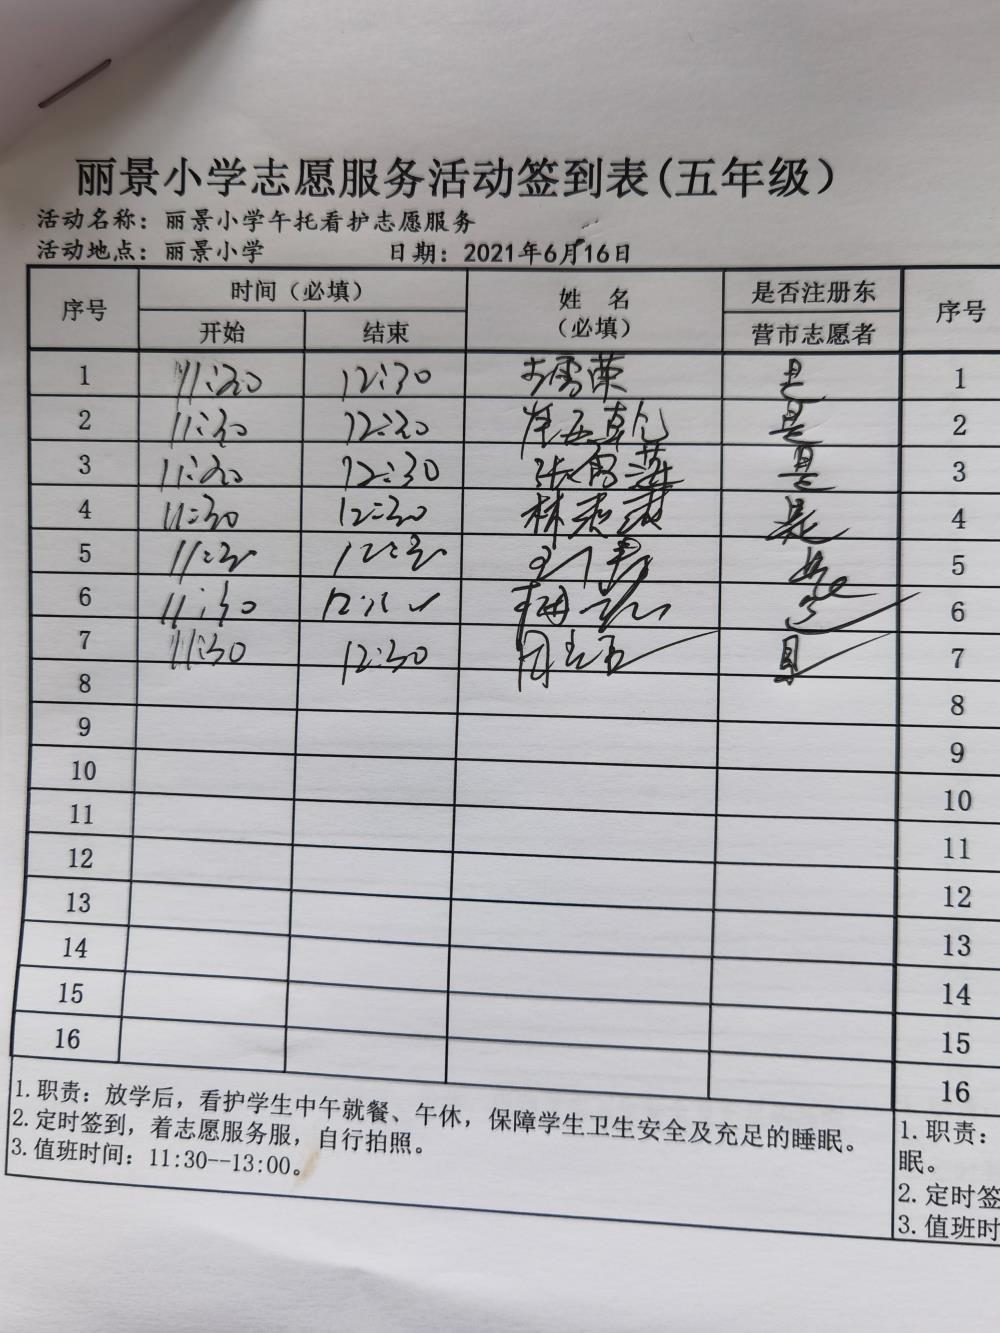 丽景小学志愿服务活动签到表(五年级)
活动名称：丽景小学午托看护志愿服务
活动地点：丽景小学 日期：2021年6月16日
序号 时间（必填） 姓 名 是否注册东 序号
开始 结束 （必填） 营市志愿者
1 11:30 12:30 是 1
2 11:30 12:30 是 2
3 11:30 12:30 张 是 3
4 11:30 12:30 林 是 4
5 5
6 11:30 6
7 11:30 12:30 周 是 7
8 8
9 9
10 10
11 11
12 12
13 13
14 14
15 15
16 16
1.职责：放学后，看护学生中午就餐、午休，保障学生卫生安全及充足的睡眠。
2.定时签到，着志愿服务服，自行拍照。
3.值班时间：11:30--13:00。
1.职责：
眠。
2.定时签
3.值班时